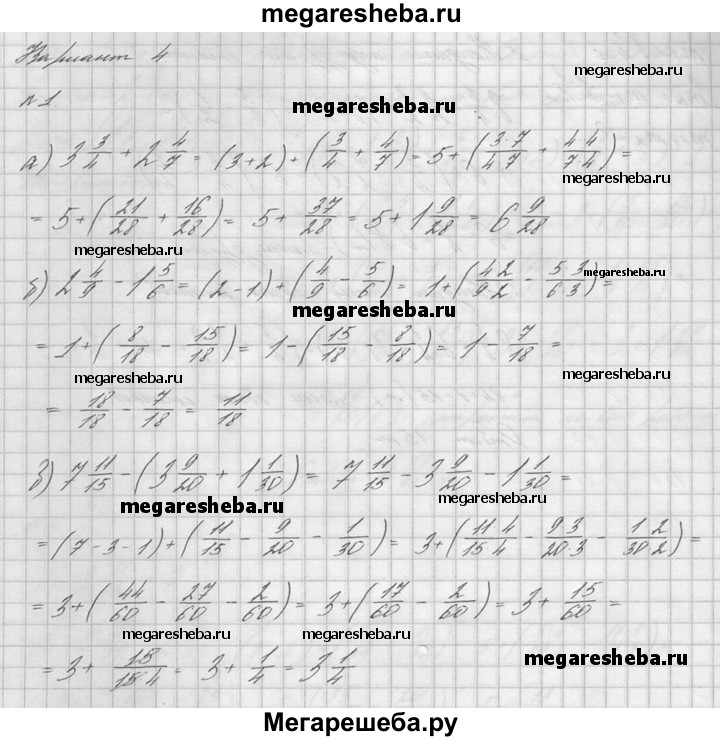 megaresheba.ru
Вариант 4
megaresheba.ru
№1.
megaresheba.ru
а) 3 3/4 + 2 4/7 = (3+2) + (3/4 + 4/7) = 5 + (3·7/4·7 + 4·4/7·4) =
megaresheba.ru
= 5 + (21/28 + 16/28) = 5 + 37/28 = 5 + 1 9/28 = 6 9/28
megaresheba.ru
б) 2 4/9 - 1 5/6 = (2-1) + (4/9 - 5/6) = 1 + (4·2/9·2 - 5·3/6·3) =
megaresheba.ru
megaresheba.ru
= 1 + (8/18 - 15/18) = 1 - (15/18 - 8/18) = 1 - 7/18 =
megaresheba.ru
megaresheba.ru
= 18/18 - 7/18 = 11/18
в) 7 11/15 - (3 9/20 + 1 1/30) = 7 11/15 - 3 9/20 - 1 1/30 =
megaresheba.ru
megaresheba.ru
= (7-3-1) + (11/15 - 9/20 - 1/30) = 3 + (11·4/15·4 - 9·3/20·3 - 1·2/30·2) =
= 3 + (44/60 - 27/60 - 2/60) = 3 + (17/60 - 2/60) = 3 + 15/60 =
megaresheba.ru
megaresheba.ru
= 3 + 15/15·4 = 3 + 1/4 = 3 1/4
megaresheba.ru
Мегарешеба.ру